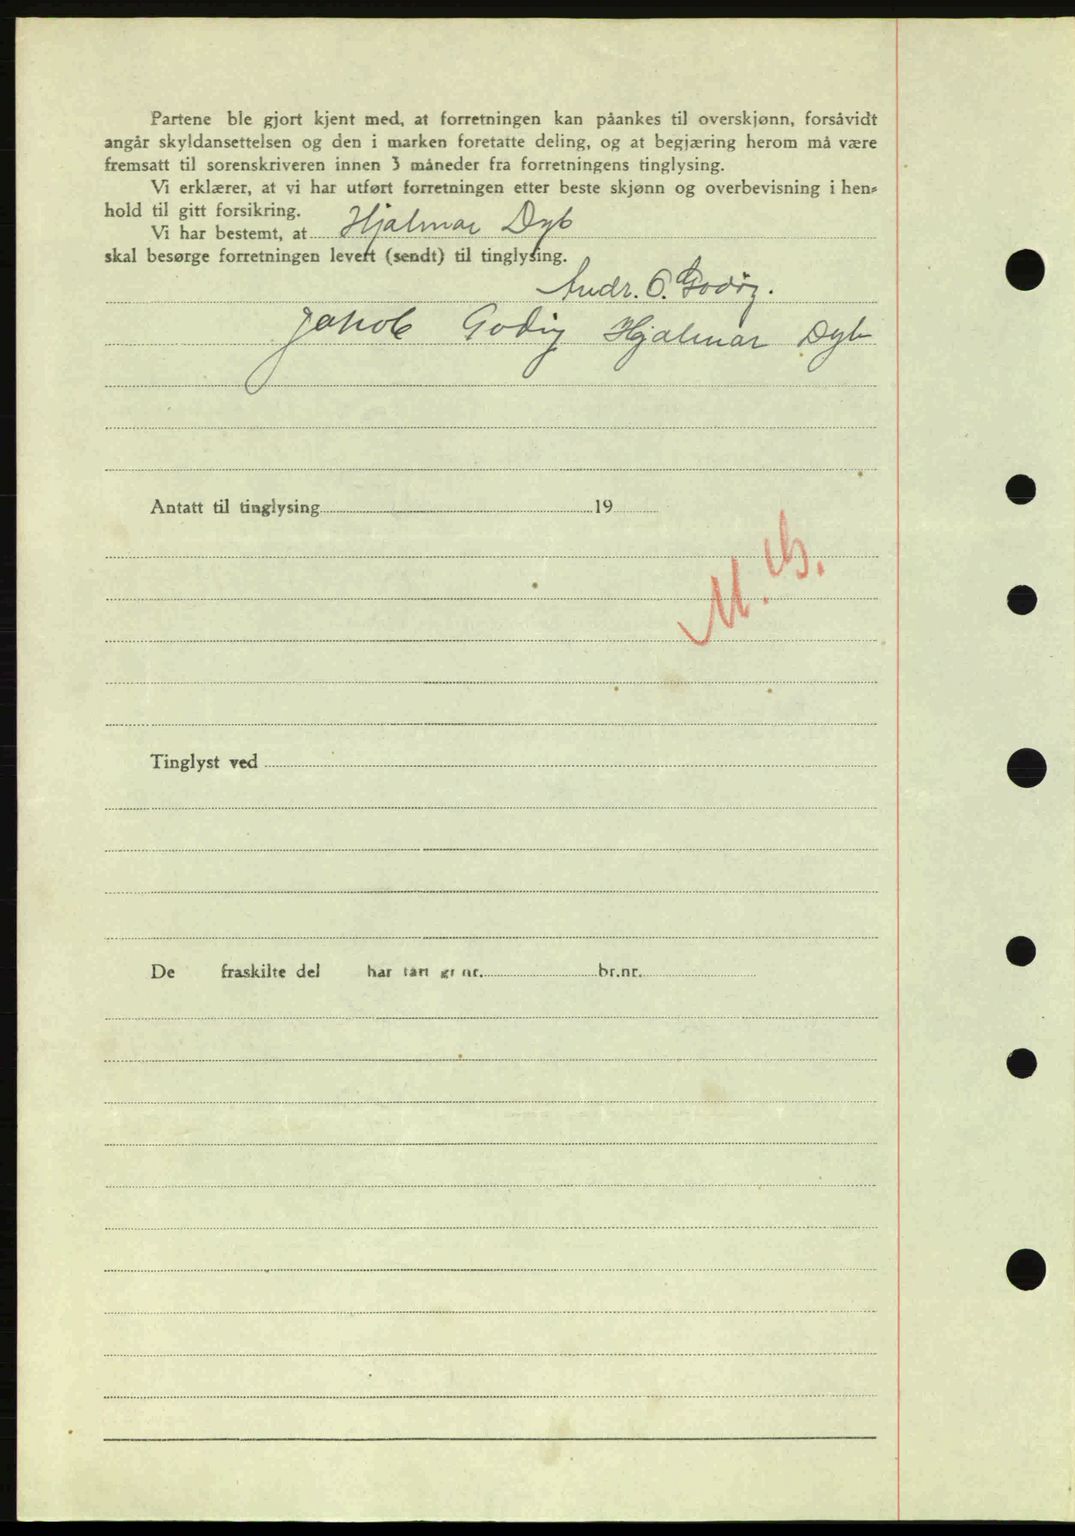 Partene ble gjort kjent med, at forretningen kan påankes til overskjønn, forsåvidt
angår skyldansettelsen og den i marken foretatte deling, og at begjæring herom må være
fremsatt til sorenskriveren innen 3 måneder fra forretningens tinglysing.
Vi erklærer, at vi har utført forretningen etter beste skjønn og overbevisning i hen-
hold til gitt forsikring.
Vi har bestemt, at Hjalmar Dyb
skal besørge forretningen levert (sendt) til tinglysing.
Andr. O. Godøy.
Jakob Godøy Hjalmar Dyb
Antatt til tinglysing 19
M. B.
Tinglyst ved
De fraskilte del har fått gr nr. br.nr.